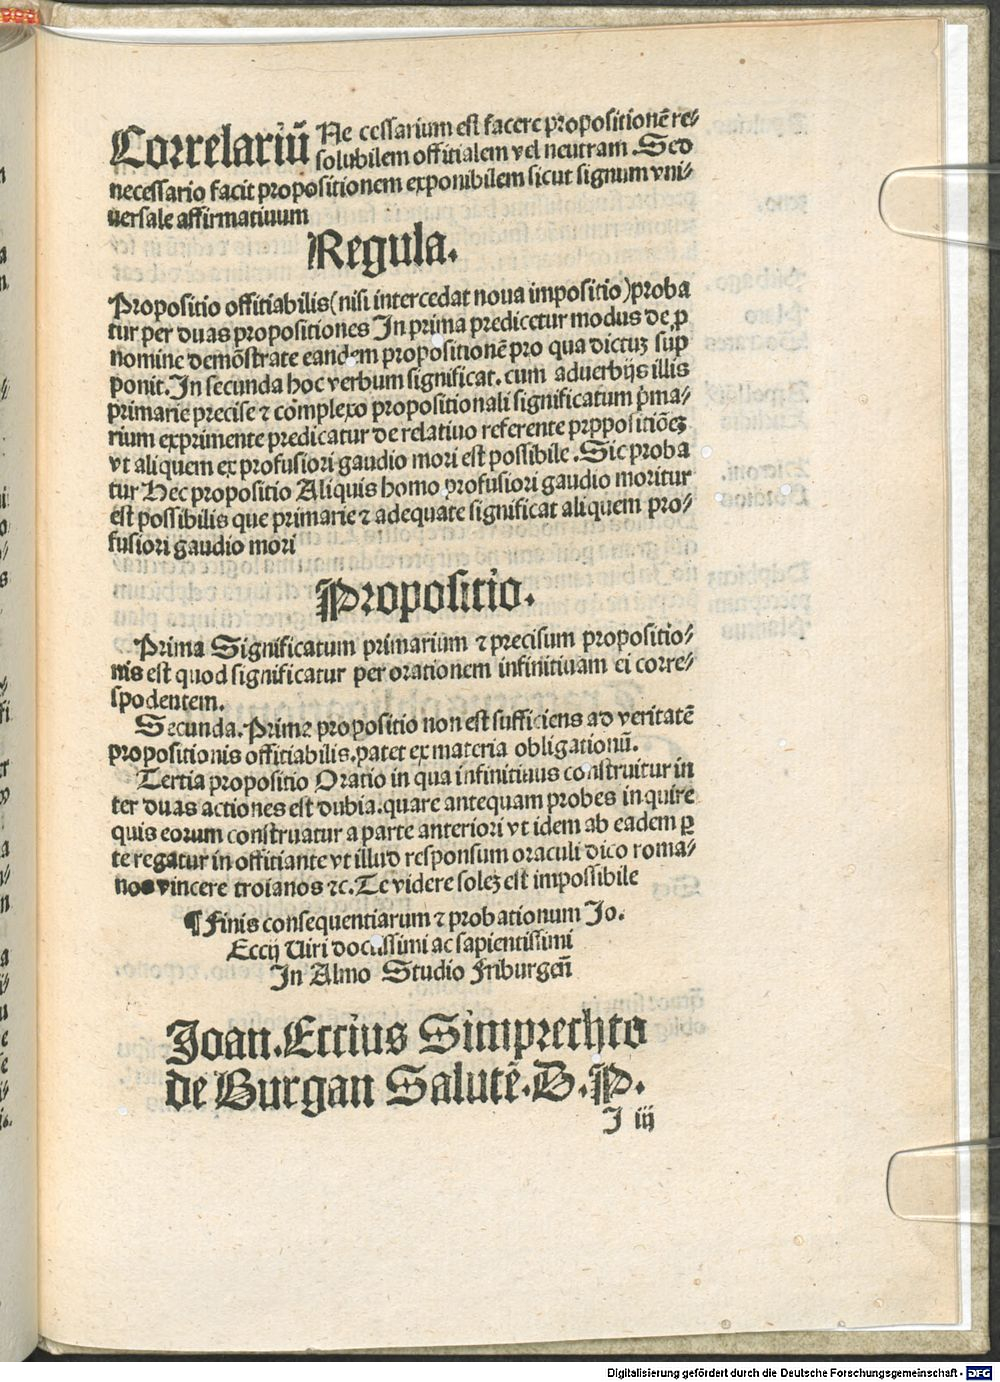 Correlariū Ne cessarium est facere propositionē re-
solubilem offitialem vel neutram .Sed
necessario facit propositionem exponibilem sicut signum vni-
uersale affirmatiuum
Regula.
Propositio offitiabilis(nisi intercedat noua impositio)proba
tur per duas propositiones In prima predicetur modus de ꝓ
nomine demōstrate eandem propositionē pro qua dictuꝫ sup
ponit.In secunda hoc verbum significat.cum aduerbijs illis
primarie precise ⁊ complexo propositionali significatum p̄ma-
rium exprimente predicatur de relatiuo referente prppositiōeꝫ
vt aliquem ex profusiori gaudio mori est possibile .Sic proba
tur Hec propositio Aliquis homo profusiori gaudio moritur
est possibilis que primarie ⁊ adequate significat aliquem pro-
fusiori gaudio mori
Propositio.
Prima Significatum primarium ⁊ precisum propositio-
nis est quod significatur per orationem infinitiuam ei corre-
spodentem.
Secunda.Prima propositio non est sufficiens ad veritatē
propositionis offitiabilis.patet ex materia obligationū.
Tertia propositio Oratio in qua infinitiuus construitur in
ter duas actiones est dubia.quare antequam probes inquire
quis eorum construatur a parte anteriori vt idem ab eadem ꝑ
te regatur in offitiante vt illud responsum oraculi dico roma-
nos vincere troianos ⁊c.Te videre soleꝫ est impossibile
¶Finis consequentiarum ⁊ probationum Jo.
Eccij Uiri doctissimi ac sapientissimi
In Almo Studio Friburgen̄
Joan.Eccius Simprechto
de Burgan Salutē.D.P.
J iij
Digitalisierung gefördert durch die Deutsche Forschungsgemeinschaft - DFG